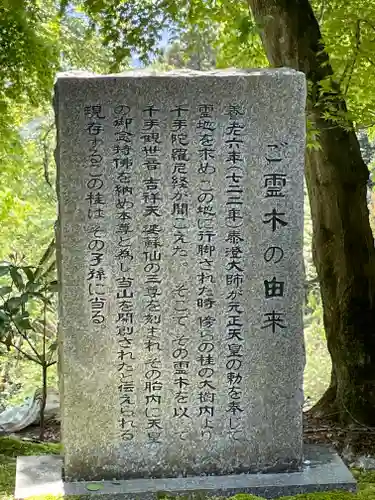 ご霊木の由来
養老六年(七二二年)泰澄大師が元正天皇の勅を奉して
霊地を求め この地に行脚された時 傍らの桂の大樹内より
千手陀羅尼経が聞こえた そこで その霊木を以て
千手観世音 吉祥天 婆蘇仙の三尊を刻まれ その胎内に天皇
の御念持佛を納め本尊と為し当山を開創されたと伝えられる
現存するこの桂は その子孫に当る